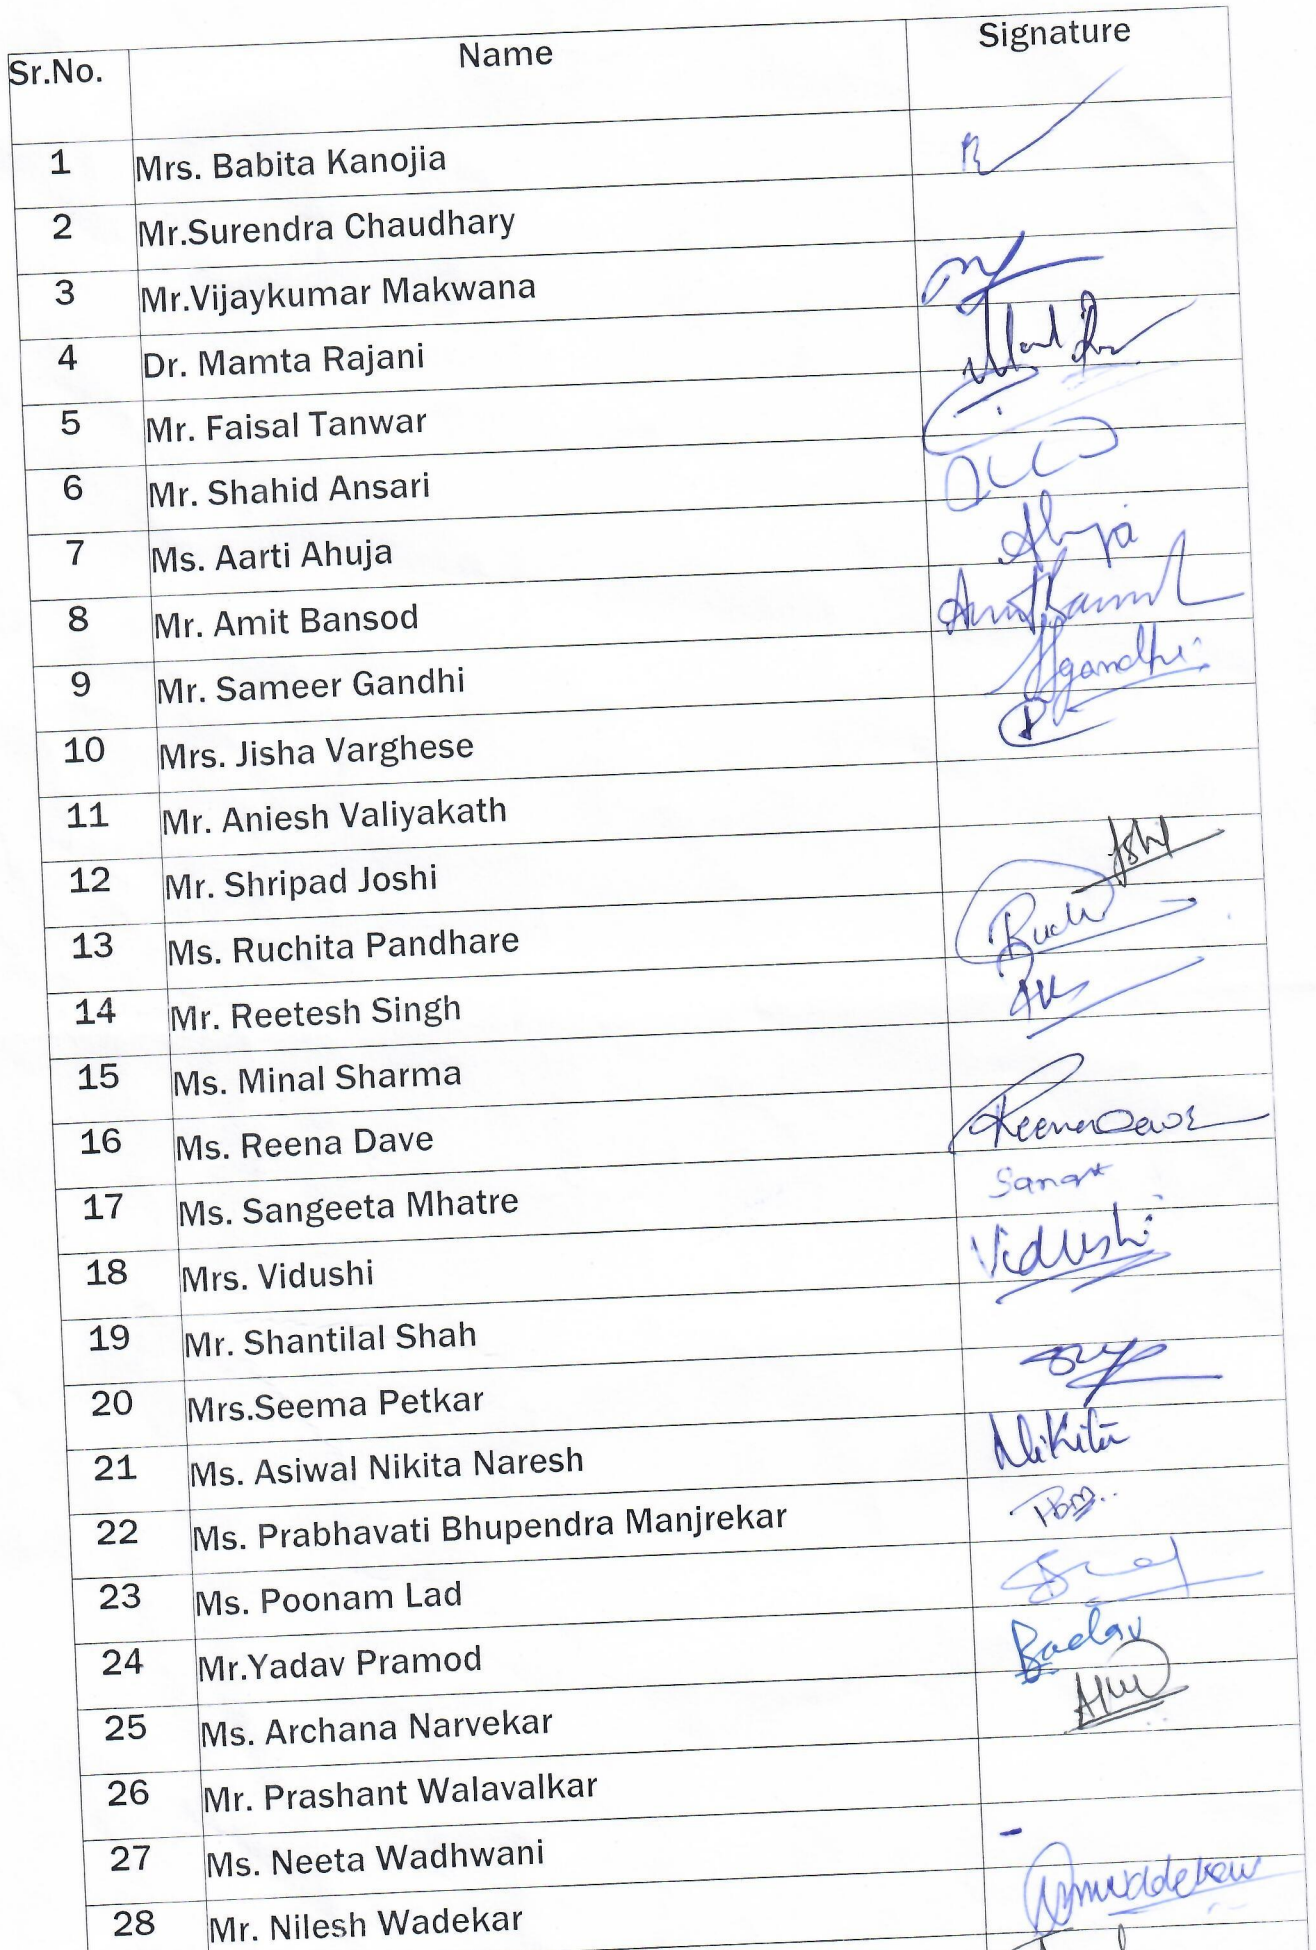 Sr.No. Name Signature
1 Mrs. Babita Kanojia
2 Mr.Surendra Chaudhary
3 Mr.Vijaykumar Makwana
4 Dr. Mamta Rajani
5 Mr. Faisal Tanwar
6 Mr. Shahid Ansari
7 Ms. Aarti Ahuja Ahuja
8 Mr. Amit Bansod
9 Mr. Sameer Gandhi Sgandhi
10 Mrs. Jisha Varghese
11 Mr. Aniesh Valiyakath
12 Mr. Shripad Joshi
13 Ms. Ruchita Pandhare
14 Mr. Reetesh Singh
15 Ms. Minal Sharma
16 Ms. Reena Dave Reena Dave
17 Ms. Sangeeta Mhatre
18 Mrs. Vidushi Vidushi
19 Mr. Shantilal Shah
20 Mrs.Seema Petkar
21 Ms. Asiwal Nikita Naresh Nikita
22 Ms. Prabhavati Bhupendra Manjrekar
23 Ms. Poonam Lad
24 Mr.Yadav Pramod
25 Ms. Archana Narvekar
26 Mr. Prashant Walavalkar
27 Ms. Neeta Wadhwani -
28 Mr. Nilesh Wadekar